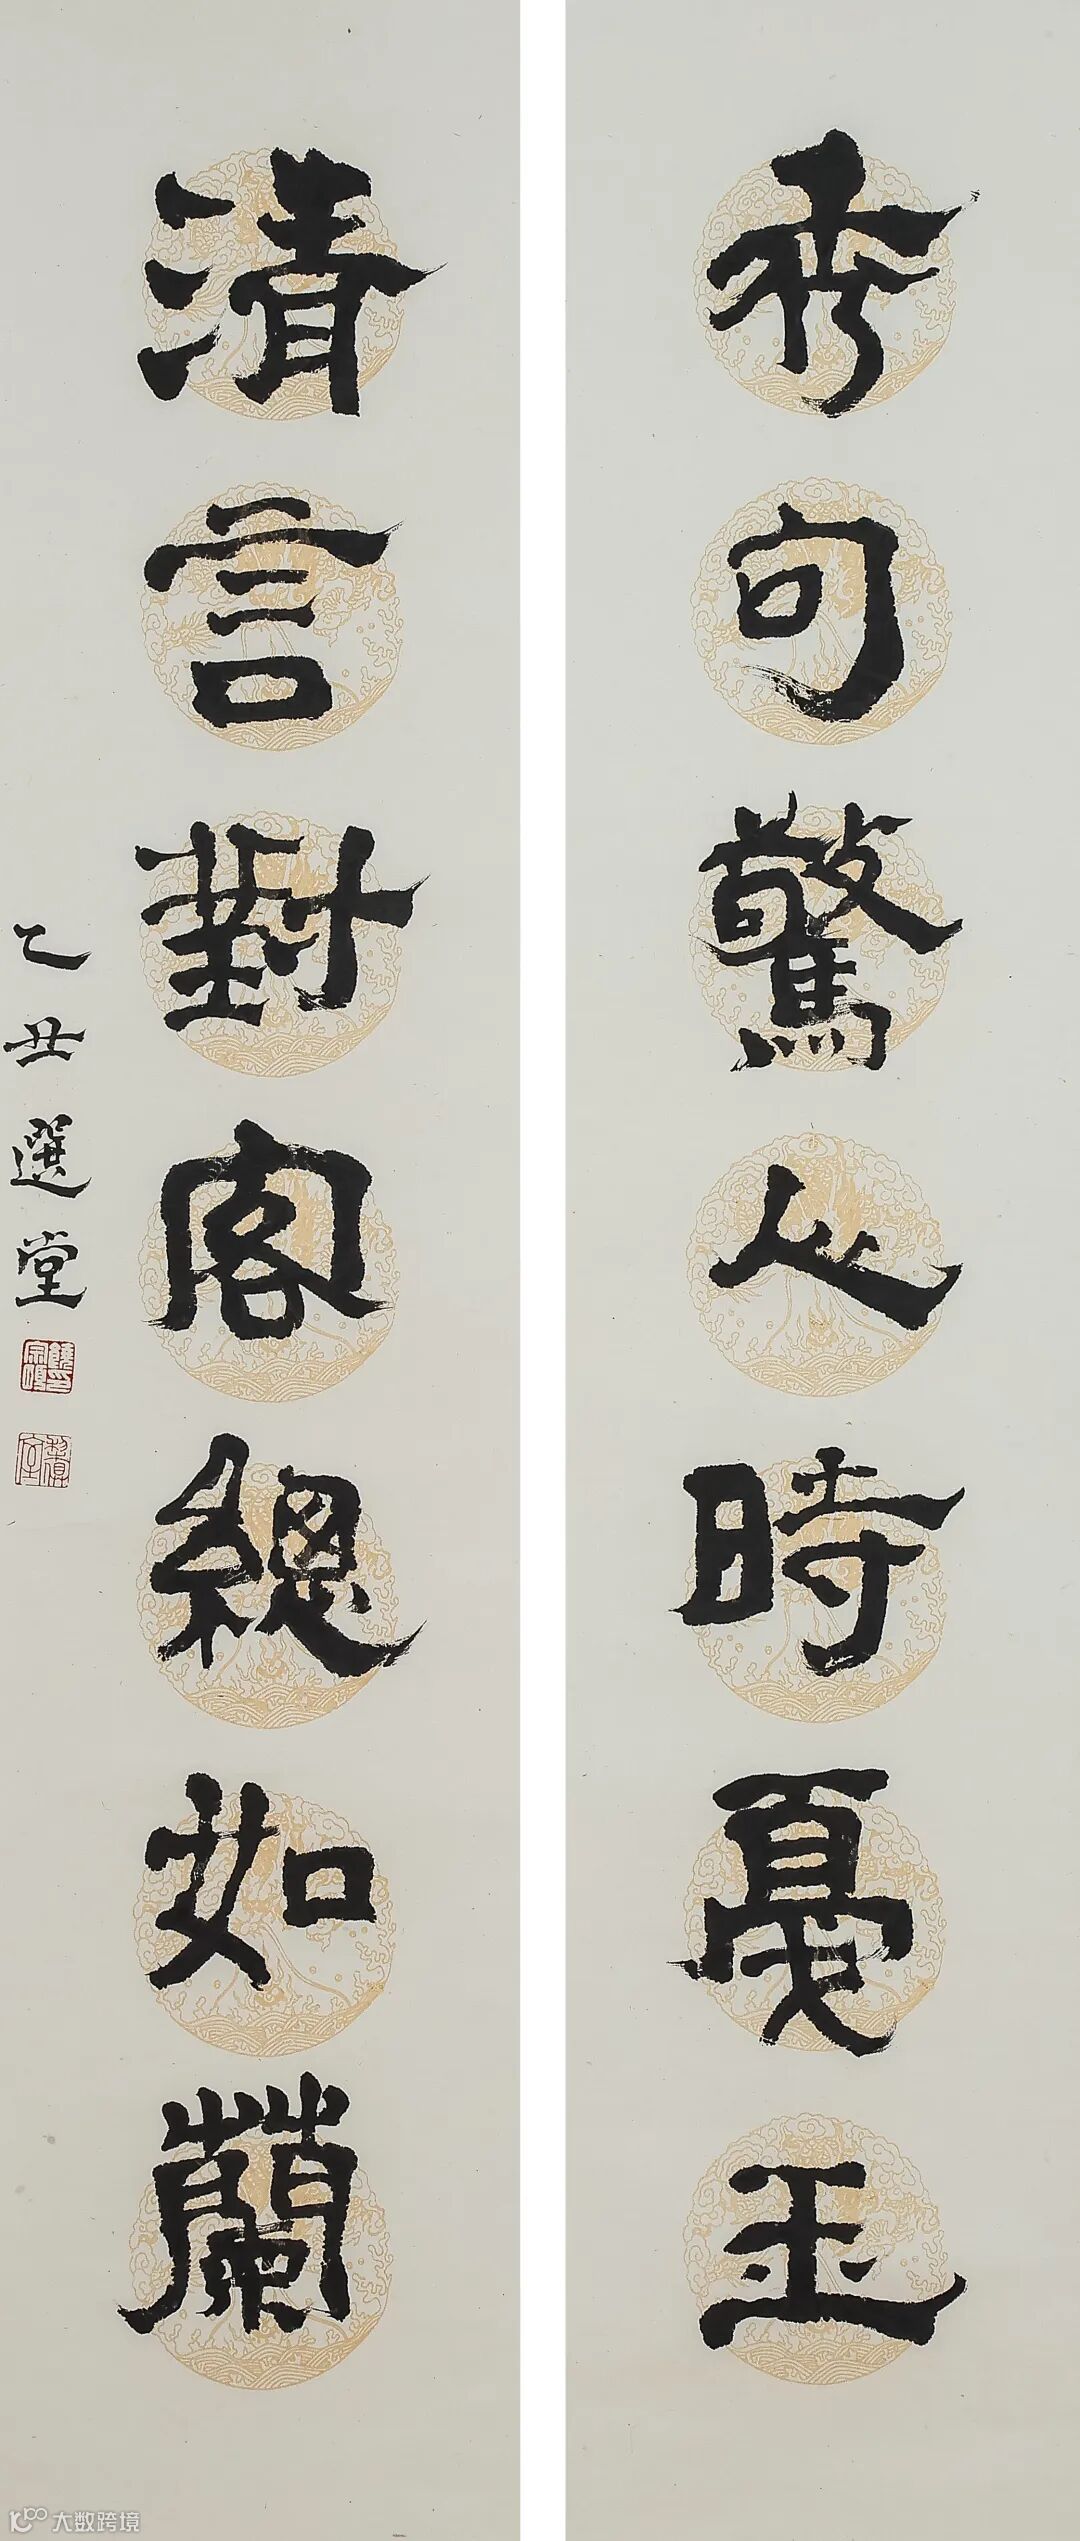 秀句驚人時戛玉
清言對客總如蘭
乙丑選堂
大数跨境